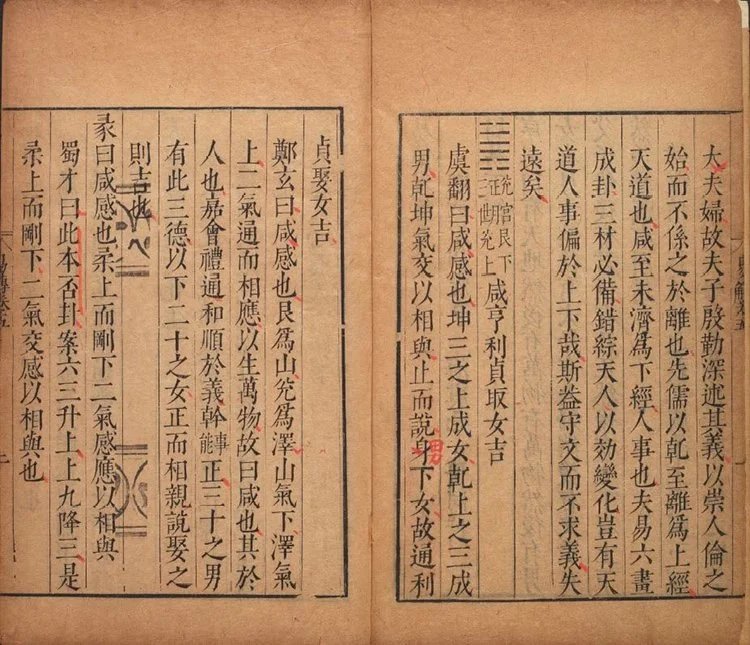 大夫婦故夫子殷勤深述其義以崇人倫之
始而不係之於離也先儒以乾至離爲上經
天道也咸至未濟爲下經人事也夫易六畫
成卦三材必備錯綜天人以効變化豈有天
道人事偏於上下哉斯葢守文而不求義失
遠矣
兊宮艮下
三世兊上
咸亨利貞取女吉
虞翻曰咸感也坤三之上成女乾上之三成
男乾坤氣交以相與止而說身下女故通利
男
貞娶女吉
鄭玄曰咸感也艮爲山兊爲澤山氣下澤氣
上二氣通而相應以生萬物故曰咸也其於
人也嘉會禮通和順於義幹事能正三十之男
有此三德以下二十之女正而相親說娶之
則吉也
彖曰咸感也柔上而剛下二氣感應以相與
蜀才曰此本否卦案六三升上上九降三是
柔上而剛下二氣交感以相與也